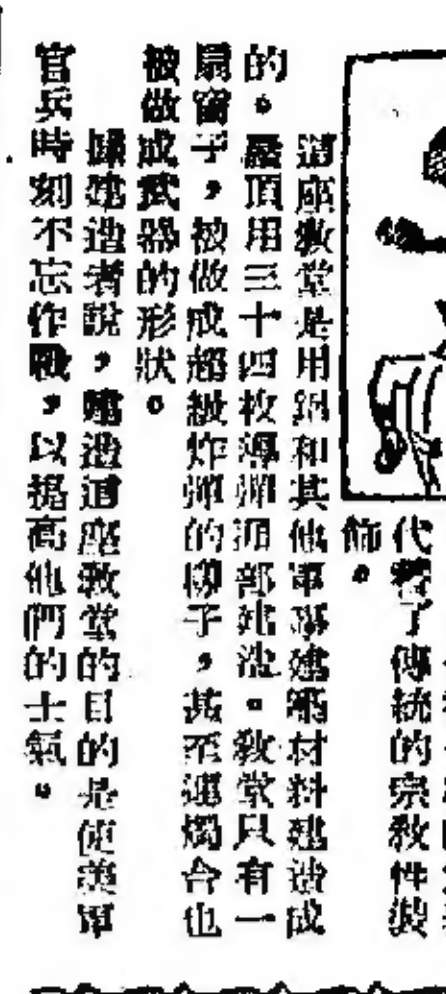 代替了傳統的宗教性裝
飾。
這座教堂是用鋁和其他軍事建築材料建造成
的。屋頂用三十四枚導彈頭部建造。教堂只有一
扇窗子,被做成超級炸彈的樣子,甚至連燭台也
被做成武器的形狀。
據建造者說,建造這座教堂的目的是使美軍
官兵時刻不忘作戰,以提高他們的士氣。